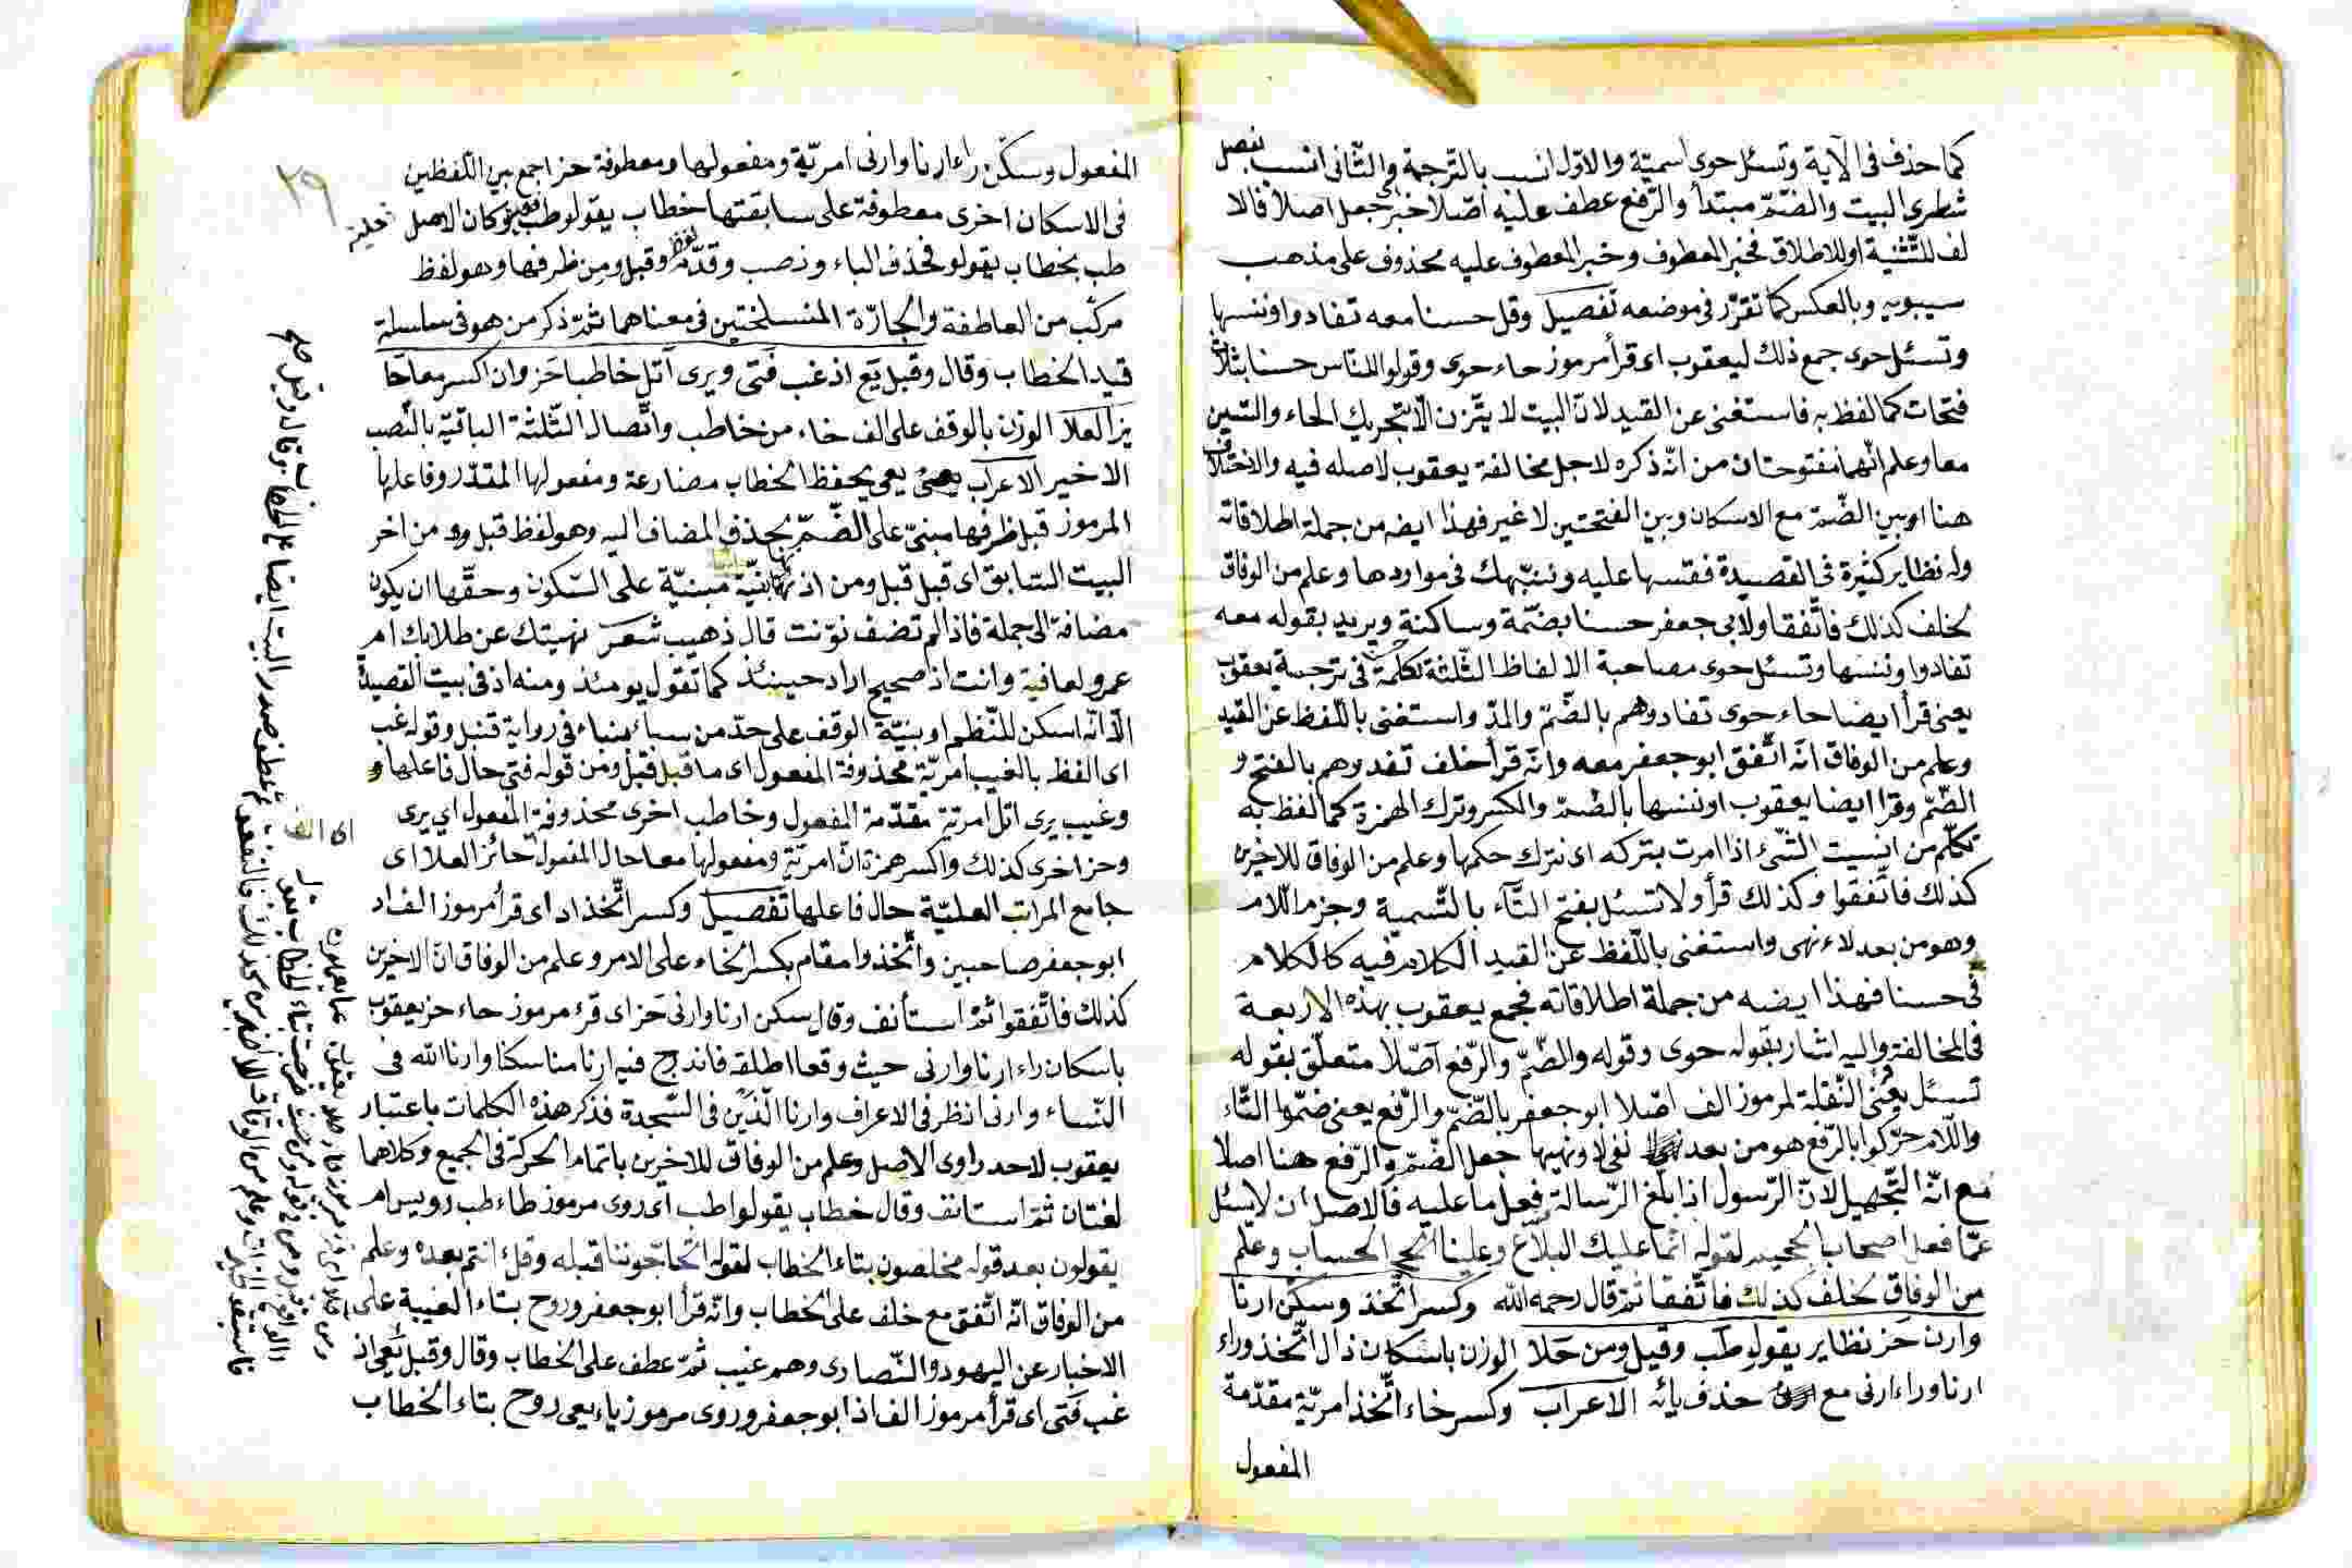 كما حذف فى الآية وتسئل حوى اسميّة والاوّل انسب بالتّرجمة والثّانى انسب بفصل
شطرى البيت والضّمّ مبتدأ والرّفع عطف عليه اصّلا خبر جعل اصلا فالا
لف للتّثنية او للاطلاق فخبر المعطوف وخبر المعطوف عليه محذوف على مذهب
سيبويه وبالعكس كما تقرّر فى موضعه تفصيل وقل حسنا معه تفادوا وننسها
وتسئل حوى جمع ذلك ليعقوب اى قرأ مرموز حاء حوى وقولوا للنّاس حسنا بثلاث
فتحات كما لفظ به فاستغنى عن القيد لانّ البيت لا يتّزن الّا بتحريك الحاء والسّين
معا وعلم انّهما مفتوحتان من انّه ذكره لاجل مخالفة يعقوب لاصله فيه والاختلاف
هنا او بين الضّمّ مع الاسكان وبين الفتحتين لا غير فهذا ايضه من جملة اطلاقاته
وله نظاير كثيرة فى القصيدة فقسها عليه وننبّهك فى مواردها وعلم من الوفاق
لخلف كذلك فاتّفقا ولابى جعفر حسنا بضمّة وساكنة ويريد بقوله معه
تفادوا وننسها وتسئل حوى مصاحبة الالفاظ الثّلثة لكلمة فى ترجمة يعقوب
يعنى قرأ ايضا حاء حوى تفادوهم بالضّمّ والمدّ واستغنى باللّفظ عن القيد
وعلم من الوفاق انّه اتّفق ابو جعفر معه وانّه قرأ خلف تفدوهم بالفتح و
الضّمّ وقرا ايضا يعقوب او ننسها بالضّمّ والكسر وترك الهمزة كما لفظ به
تكلّم من انسيت الشّئ اذا امرت بتركه اى نترك حكمها وعلم من الوفاق للاخيرين
كذلك فاتّفقوا وكذلك قرأ ولا تسئل بفتح التّآء بالتّسمية وجزم اللّام
وهو من بعد لاء نهى واستغنى باللّفظ عن القيد الكلام فيه كالكلام
فى حسنا فهذا ايضه من جملة اطلاقاته فجمع يعقوب بهذه الاربعة
فى المخالفة واليه اشار بقوله حوى وقوله والضّمّ والرّفع اصّلا متعلّق بقوله
تسئل يعنى النّقلة لمرموز الف اصّلا ابو جعفر بالضّمّ والرّفع يعنى ضمّوا التّاء
واللّام حرّكوا بالرّفع هو من بعد نفى لا ونهيها جعل الضّمّ والرّفع هنا اصلا
مع انّه التّجهيل لانّ الرّسول اذا بلّغ الرّسالة فعل ما عليه فالاصل ان لا يسئل
عمّا فعل اصحاب الجحيم لقوله انّما عليك البلاغ وعلينا الحساب وعلم
من الوفاق لخلف كذلك فاتّفقا ثمّ قال رحمه الله وكسر اتّخذ وسكّن ارنا
وارن حز نظاير يقولو طب وقبل ومن حلا الوزن باسكان ذال اتّخذ وراء
ارنا وراء ارنى مع حذف يائه الاعراب وكسر خاء اتّخذ امريّة مقدّمة
المفعول
٢٩
المفعول وسكّن راء ارنا وارنى امريّة ومفعولها ومعطوفة حز اجمع بين اللّفظين
فى الاسكان اخرى معطوفة على سابقتها خطاب يقولو طب وكان الاصل
طب بخطاب يقولو فحذف الباء ونصب وقدّم وقبل ومن ظرفها وهو لفظ
مركّب من العاطفة والجارّة المنسلختين فى معناهما ثمّ ذكر من هو فى سلسلة
قيد الخطاب وقال وقبل يع اذ غب فتى ويرى اتل خاطبا حز وان كسر معا حا
يز العلا الوزن بالوقف على الف خاء من خاطب واتّصال الثّلثة الباقية بالنّصب
الاخير الاعراب يعى يحفظ الخطاب مضارعة ومفعولها المقدّر وفاعلها
المرموز قبل ظرفها مبنىّ على الضّمّ بحذف المضاف اليه وهو لفظ قبل ومن اخر
البيت السّابق اى قبل قبل ومن اذ مبنيّة على السّكون وحقّها ان يكون
مضافة الى جملة فاذا لم تضف نوّنت قال ذهيب شعر نهيتك عن طلابك ام
عمرو لعافية وانت اذ صحيح اراد حينئذ كما تقول يومئذ ومنه اذ فى بيت القصيدة
الّا انّه اسكن للنّظم او بنيّة الوقف على حدّ من سبأ بنباء فى رواية قنبل وقوله غب
اى الفظ بالغيب امريّة محذوفة المفعول اى ما قبل قبل ومن قوله فتى حال فاعلها و
وغيب يرى اتل امريّة مقدّمة المفعول وخاطب اخرى محذوفة المفعول اى يرى
وحز اخرى كذلك واكسر همزة انّ امريّة ومفعولها معا حال المفعول حائز العلا اى
جامع المراتب العليّة حال فاعلها تفصيل وكسر اتّخذ اد اى قرأ مرموز الف اد
ابو جعفر صاحبين واتّخذوا مقام بكسر الخاء على الامر وعلم من الوفاق انّ الاخيرين
كذلك فاتّفقوا ثمّ استأنف وقال سكن ارنا وارنى حز اى قرء مرموز حاء حز يعقوب
باسكان راء ارنا وارنى حيث وقعا اطلقه فاندرج فيه ارنا مناسكنا وارنا الله فى
النّساء وارنى انظر فى الاعراف وارنا الّذين فى السّجدة فذكر هذه الكلمات باعتبار
يعقوب لاحد راوى الاصل وعلم من الوفاق للاخرين باتمام الحركة فى الجميع وكلاهما
لغتان ثمّ استانف وقال خطاب يقولوا طب اى روى مرموز طاء طب رويس ام
يقولون بعد قوله مخلصون بتاء الخطاب لقوله اتحاجّوننا قبله وقل ءانتم بعده وعلم
من الوفاق انّه اتّفق مع خلف على الخطاب وانّه قرأ ابو جعفر وروح بتاء الغيبة على
الاخبار عن اليهود والنّصارى وهم غيب ثمّ عطف على الخطاب وقال وقبل يعى اذ
غب فتى اى قرأ مرموز الف اذ ابو جعفر وروى مرموز ياء يعى روح بتاء الخطاب